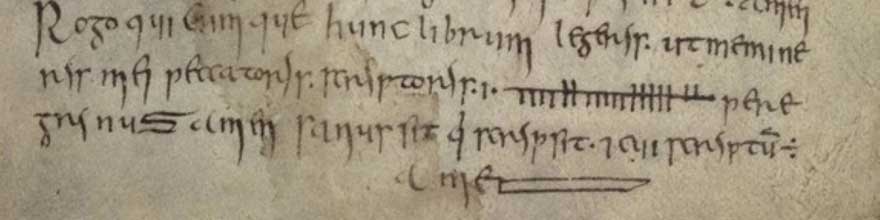 Rogo qui cum que hunc librum legeris. ut memine
ris mei peccatoris. scriptoris. .i. ᚄᚑᚅᚔᚇ pere
grinus amen sanus sit q̇ scripsit. ⁊ cui scriptū ÷
Amen